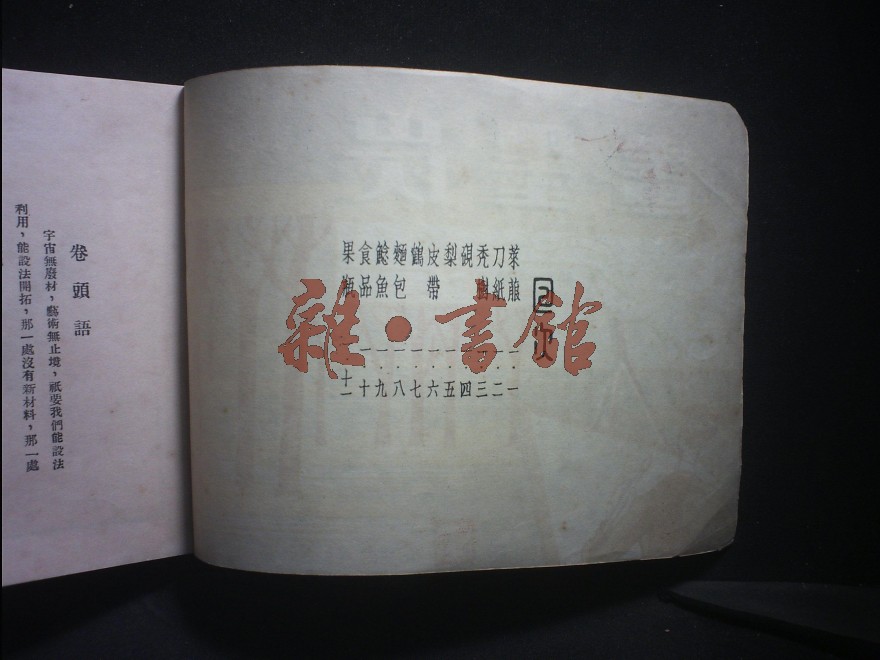 目次
萊菔⋯一
刀紙⋯二
禿樹⋯三
硯⋯四
梨⋯五
皮帶⋯六
鶴⋯七
麵包⋯八
鯰魚⋯九
食品⋯十
果瓶⋯十一
雜·書館
卷頭語
宇宙無廢材，藝術無止境，祇要我們能設法
利用，能設法開拓，那一處沒有新材料，那一處